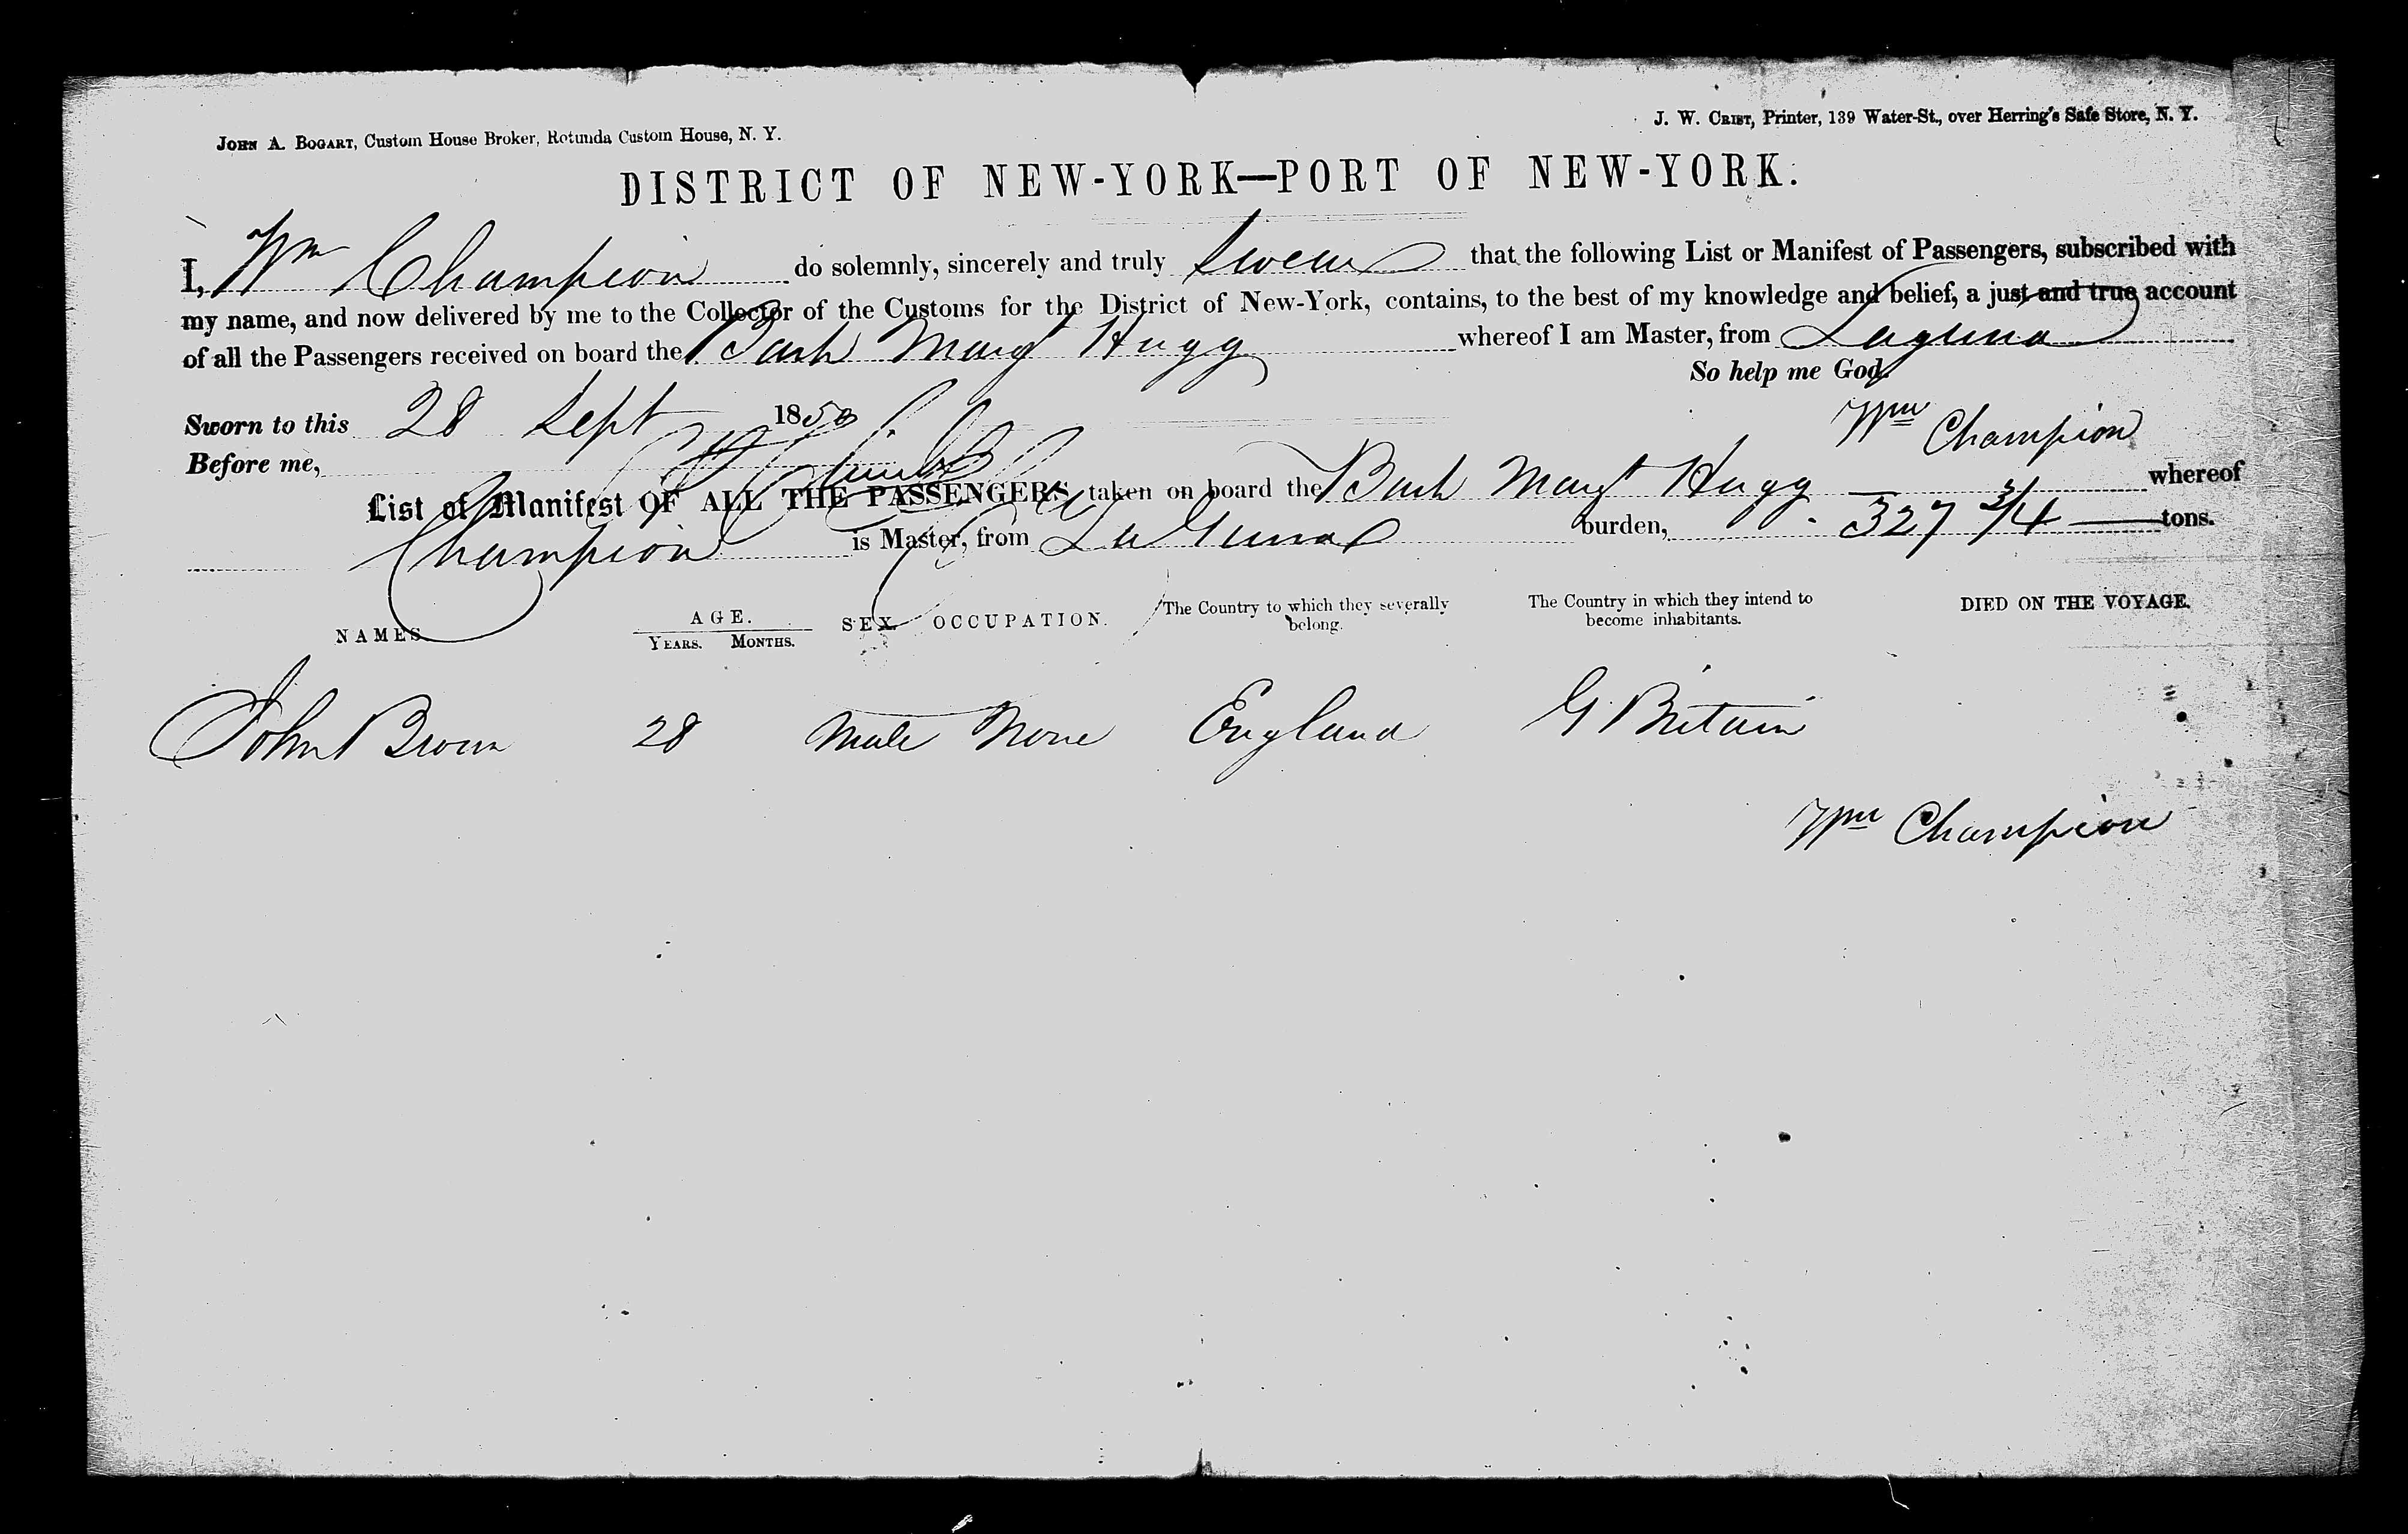 JOHN A. BOGART, Custom House Broker, Rotunda Custom House, N. Y.
J. W. CRIST, Printer, 139 Water-St., over Herring's Safe Store, N. Y.
DISTRICT OF NEW-YORK—PORT OF NEW-YORK.
I, Wm Champion do solemnly, sincerely and truly swear that the following List or Manifest of Passengers, subscribed with
my name, and now delivered by me to the Collector of the Customs for the District of New-York, contains, to the best of my knowledge and belief, a just and true account
of all the Passengers received on board the Bark Margt Hugg whereof I am Master, from Laguna
So help me God.
Sworn to this 28 Sept 185
Wm Champion
Before me,
List or Manifest OF ALL THE PASSENGERS taken on board the Bark Margt Hugg whereof
Champion is Master, from Laguna burden, 327 3/4 tons.
NAMES AGE. YEARS. MONTHS. SEX OCCUPATION. The Country to which they severally belong. The Country in which they intend to become inhabitants. DIED ON THE VOYAGE.
John Brown 28 Male None England G Britain
Wm Champion